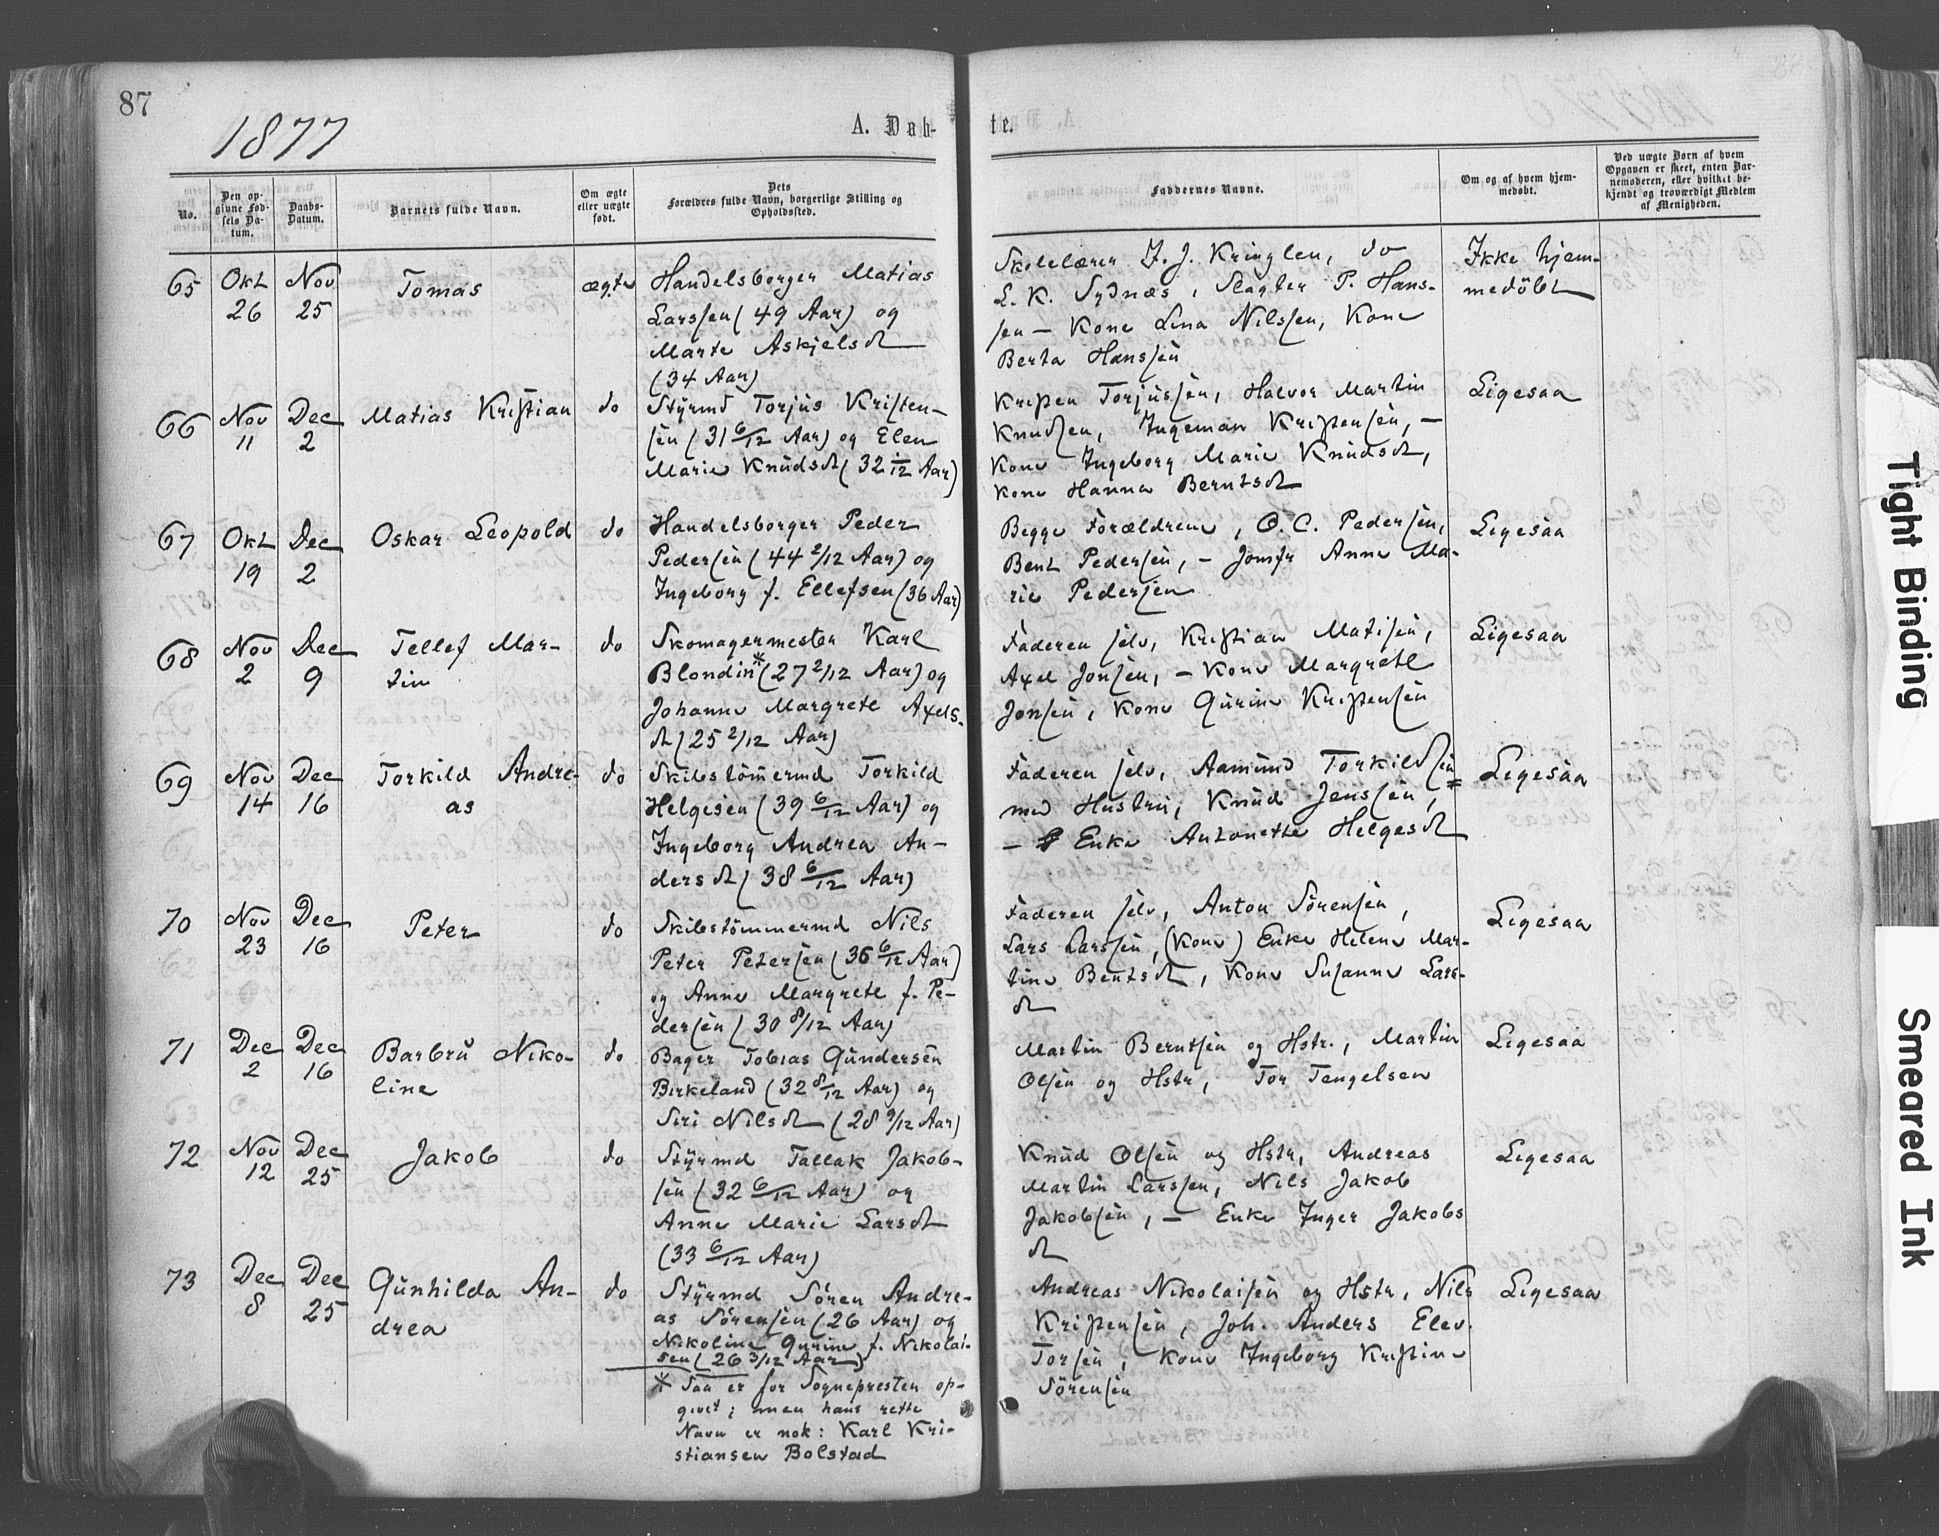 87
1877
A. Dåb-
te.
No.
Den op-
givne Fød-
sels Da-
tum.
Daabs-
Datum.
Barnets fulde Navn.
Om ægte
eller uægte
født.
Dets
Forældres fulde Navn, borgerlige Stilling og
Opholdssted.
Faddernes Navne.
Om og af hvem hjem-
medøbt.
Ved uægte Børn af hvem
Opgaven er skeet, enten Bar-
nemoderen, eller hvilket be-
kjendt og troværdigt Medlem
af Menigheden.
65
Okt
26
Nov
25
Tomas
ægte
Handelsborger Matias
Larssen (49 Aar) og
Marte Askjelsdt
(34 Aar)
Skolelærer J. J. Kringlen, do
L. K. Sydnæs, Slagter P. Hans-
sen — Kone Lina Nilssen, Kone
Berta Hanssen
Ikke hjem-
medöbt
66
Nov
11
Dec
2
Matias Kristian
do
Styrmd Torjus Kristen-
sen (31 6/12 Aar) og Elen
Marie Knudsdt (32 1/12 Aar)
Kristen Torjussen, Halvor Martin
Knudsen, Ingeman Kristensen, —
Kone Ingeborg Marie Knudsdt,
Kone Hanna Berntsdt
Ligesaa
67
Okt
19
Dec
2
Oskar Leopold
do
Handelsborger Peder
Pedersen (44 2/12 Aar) og
Ingeborg f. Ellefsen (36 Aar)
Begge Forældrene, O. C. Pedersen,
Bent Pedersen, — Jomfr Anne Ma-
rie Pedersen
Ligesaa
68
Nov
2
Dec
9
Tellef Mar-
tin
do
Skomagermester Karl
Blondin* (27 2/12 Aar) og
Johanne Margrete Axels-
dt (25 2/12 Aar)
Faderen selv, Kristian Matisen,
Axel Jonsen, — Kone Margrete
Jonsen, Kone Gurine Kristensen
Ligesaa
69
Nov
14
Dec
16
Torkild Andre-
as
do
Skibstömermd Torkild
Helgesen (39 6/12 Aar) og
Ingeborg Andrea An-
dersdt (38 6/12 Aar)
Faderen selv, Aamund Torkildsen
med Hustru, Knud Jenssen,
— Enke Antonette Helgesdt
Ligesaa
70
Nov
23
Dec
16
Peter
do
Skibstömmermd Nils
Peter Petersen (36 6/12 Aar)
og Anne Margrete f. Pe-
dersen (30 8/12 Aar)
Faderen selv, Anton Sörensen,
Lars Larssen, (Kone) Enke Helene Mar-
tine Bentsdt, Kone Susanne Lars-
dt
Ligesaa
71
Dec
2
Dec
16
Barbru Niko-
line
do
Bager Tobias Gundersen
Birkeland (32 8/12 Aar) og
Siri Nilsdt (28 9/12 Aar)
Martin Berntsen og Hstr., Martin
Olsen og Hstr, Tor Tengelsen
Ligesaa
72
Nov
12
Dec
25
Jakob
do
Styrmd Tallak Jakob-
sen (32 6/12 Aar) og
Anne Marie Larsdt
(33 6/12 Aar)
Knud Olsen og Hstr, Andreas
Martin Larssen, Nils Jakob
Jakobsen, — Enke Inger Jakobs
dt
Ligesaa
73
Dec
8
Dec
25
Gunhilda An-
drea
do
Styrmd Sören Andre-
as Sörensen (26 Aar) og
Nikoline Gurine f. Nikolai-
sen (26 3/12 Aar)
Andreas Nikolaisen og Hstr, Nils
Kristensen, Joh. Anders Elev.
Torsen, Kone Ingeborg Kristine
Sörensen
Ligesaa
* Saa er for Sognepresten op-
givet; men hans rette
Navn er nok: Karl Kri-
stiansen Bolstad
Tight Binding
Smeared Ink